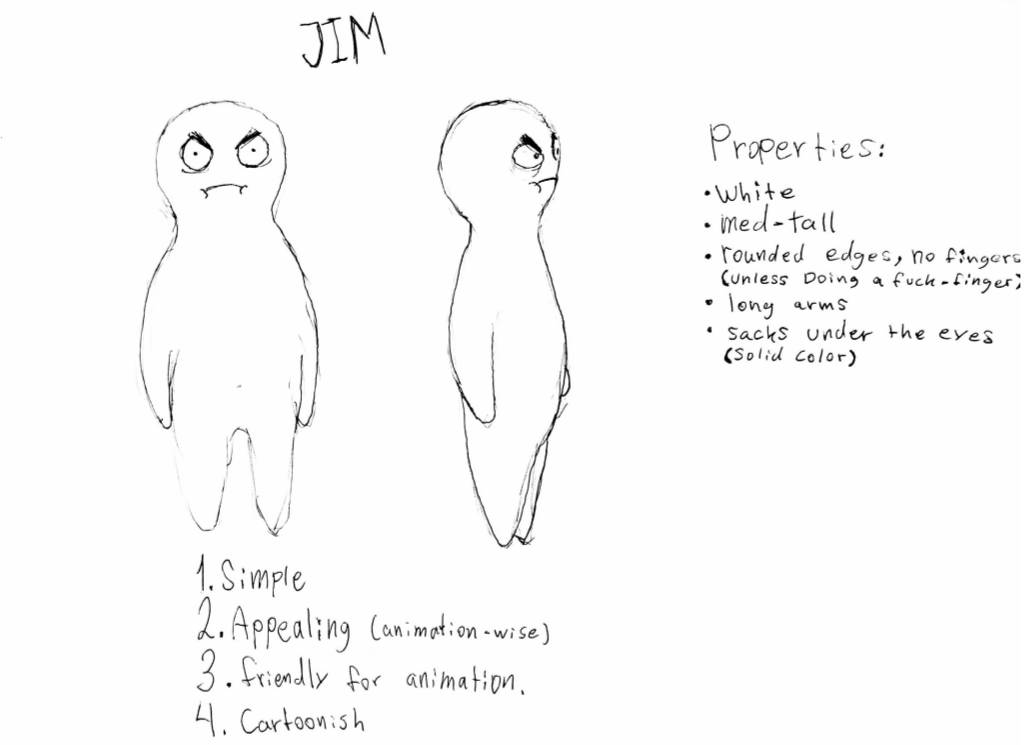 JIM
Properties:
• White
• med-tall
• rounded edges, no fingers
(unless Doing a fuck-finger)
• long arms
• sacks under the eyes
(Solid Color)
1. Simple
2. Appealing (animation-wise)
3. friendly for animation.
4. Cartoonish